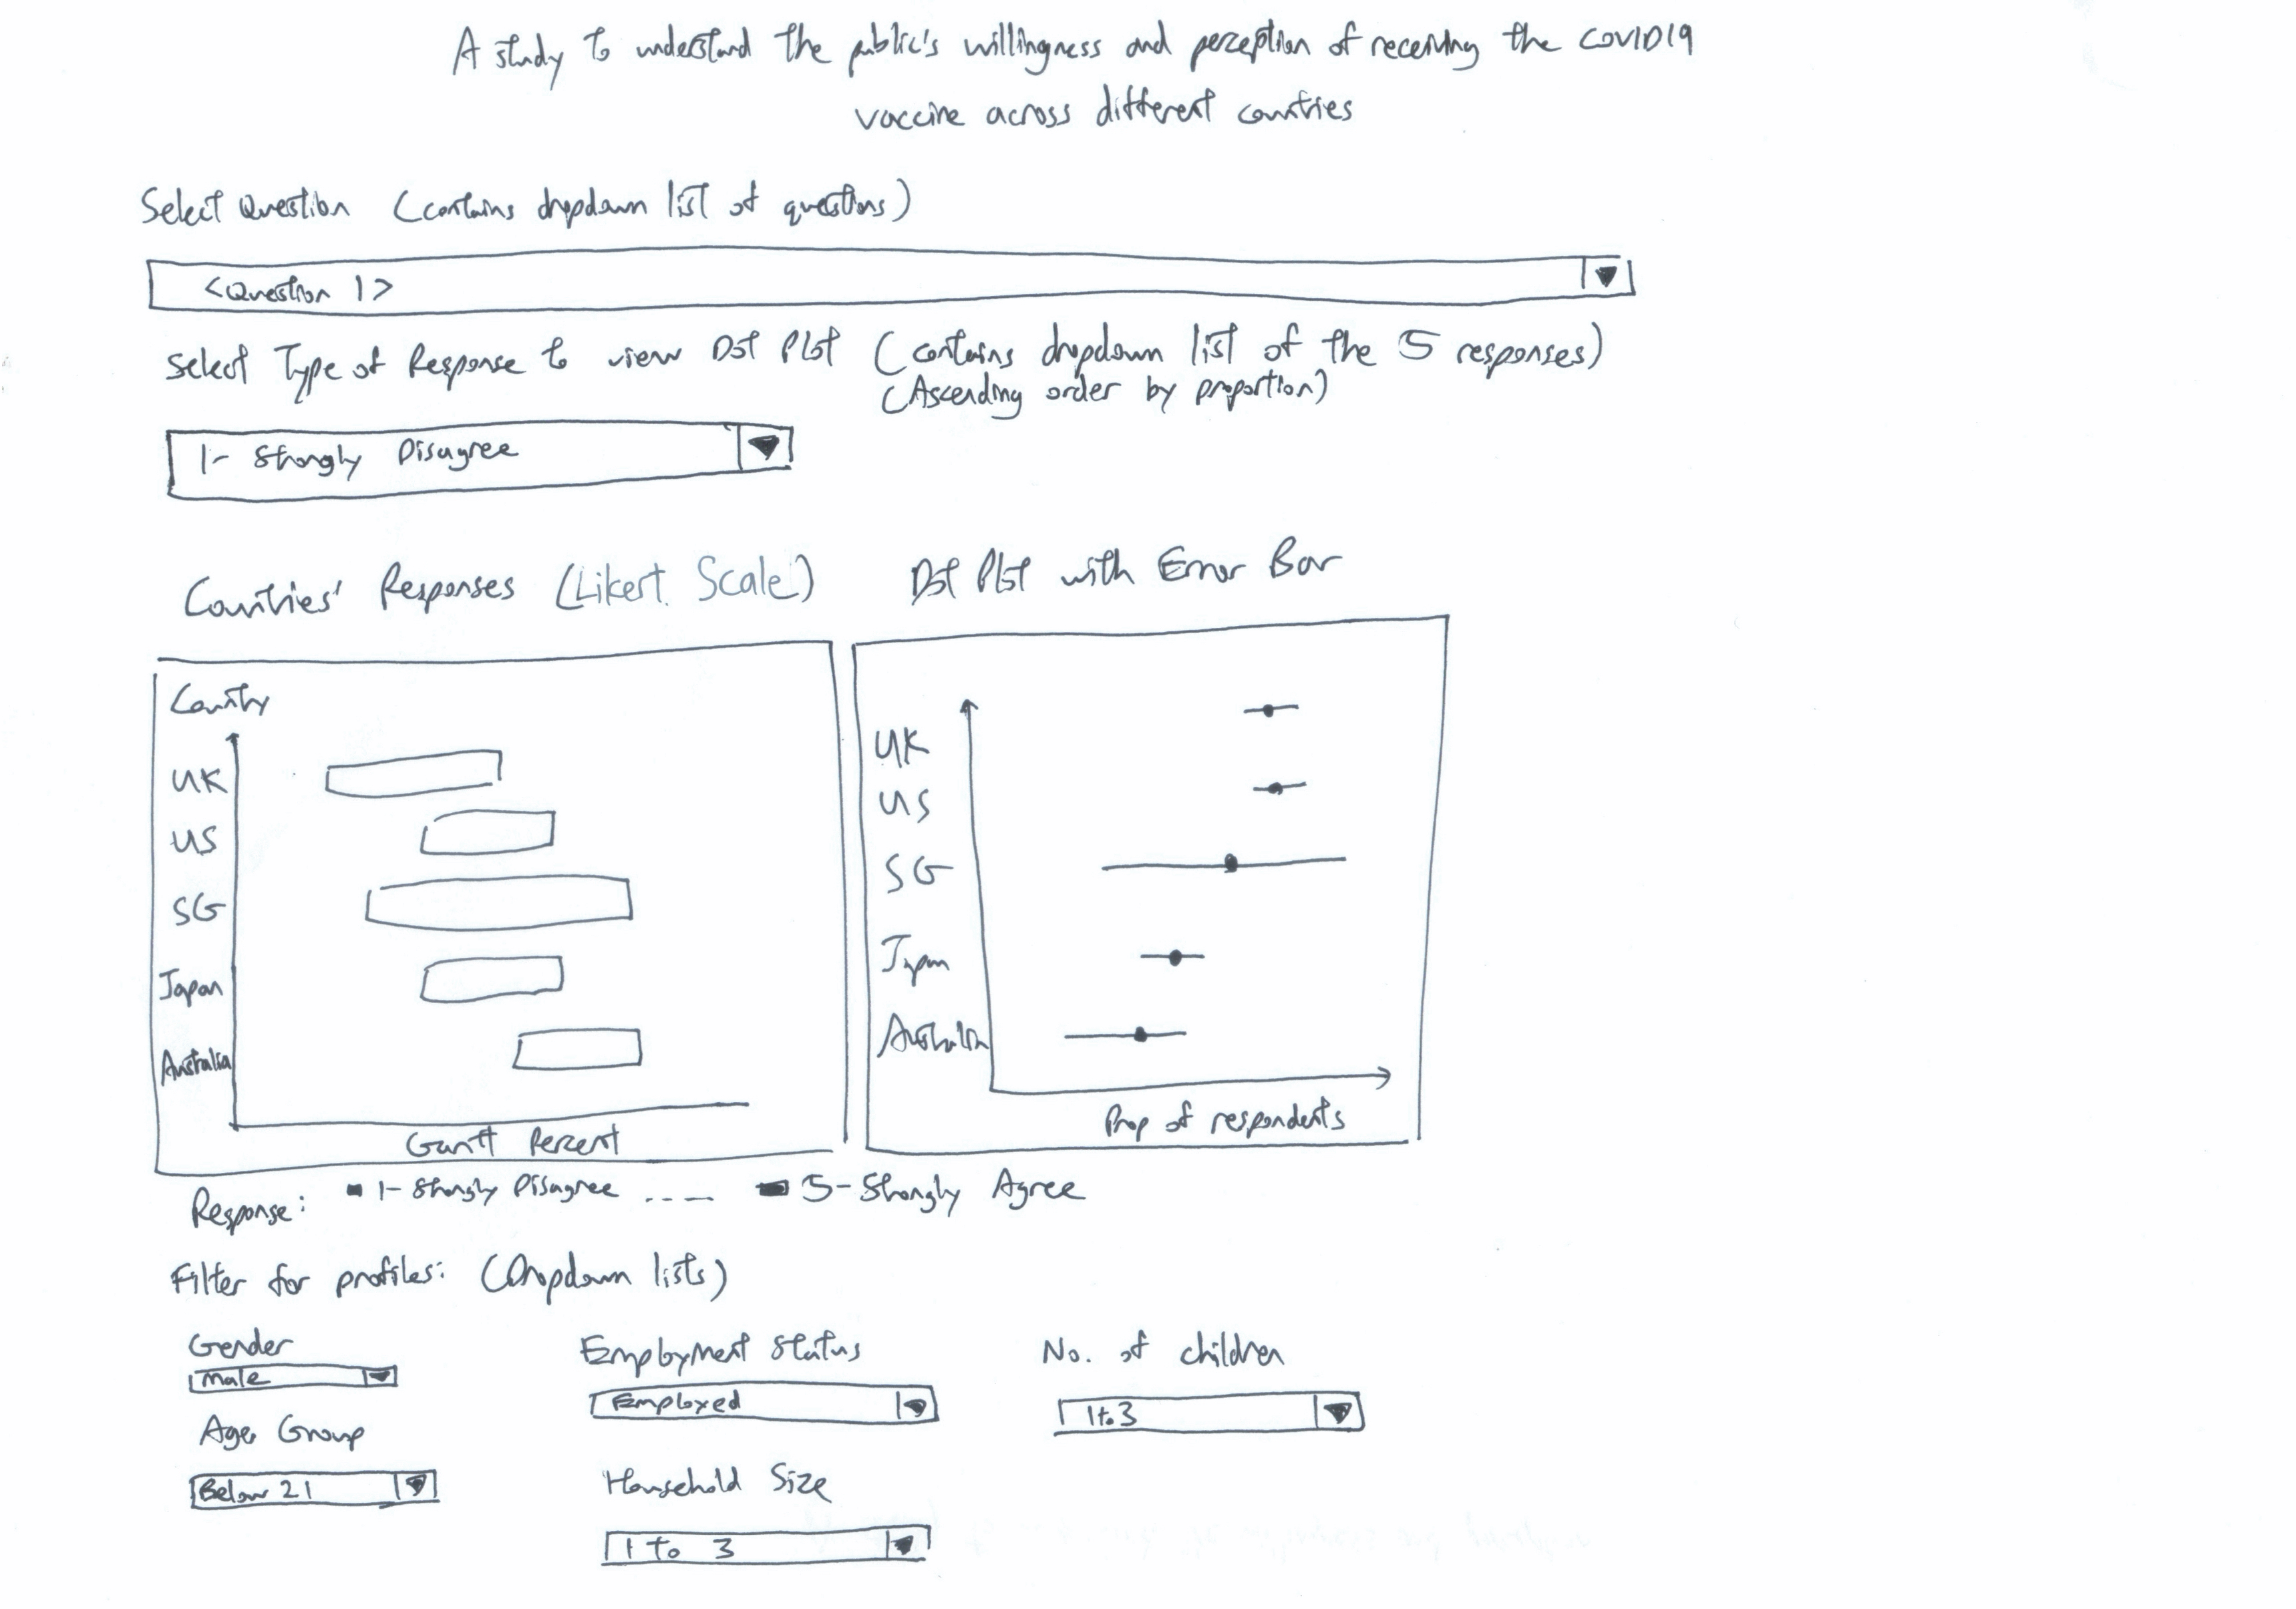 A study to understand the public's willingness and perception of receiving the COVID19
vaccine across different countries
Select Question (contains dropdown list of questions)
<Question 1>
Select Type of Response to view Dot Plot (contains dropdown list of the 5 responses)
(Ascending order by proportion)
1- Strongly Disagree
Countries' Responses (Likert Scale)
Dot Plot with Error Bar
Country
UK
US
SG
Japan
Australia
Gantt Percent
UK
US
SG
Japan
Australia
Prop of respondents
Response: 1- Strongly Disagree ---- 5- Strongly Agree
Filter for profiles: (Dropdown lists)
Gender
Male
Age Group
Below 21
Employment Status
Employed
Household Size
1 to 3
No. of children
1 to 3